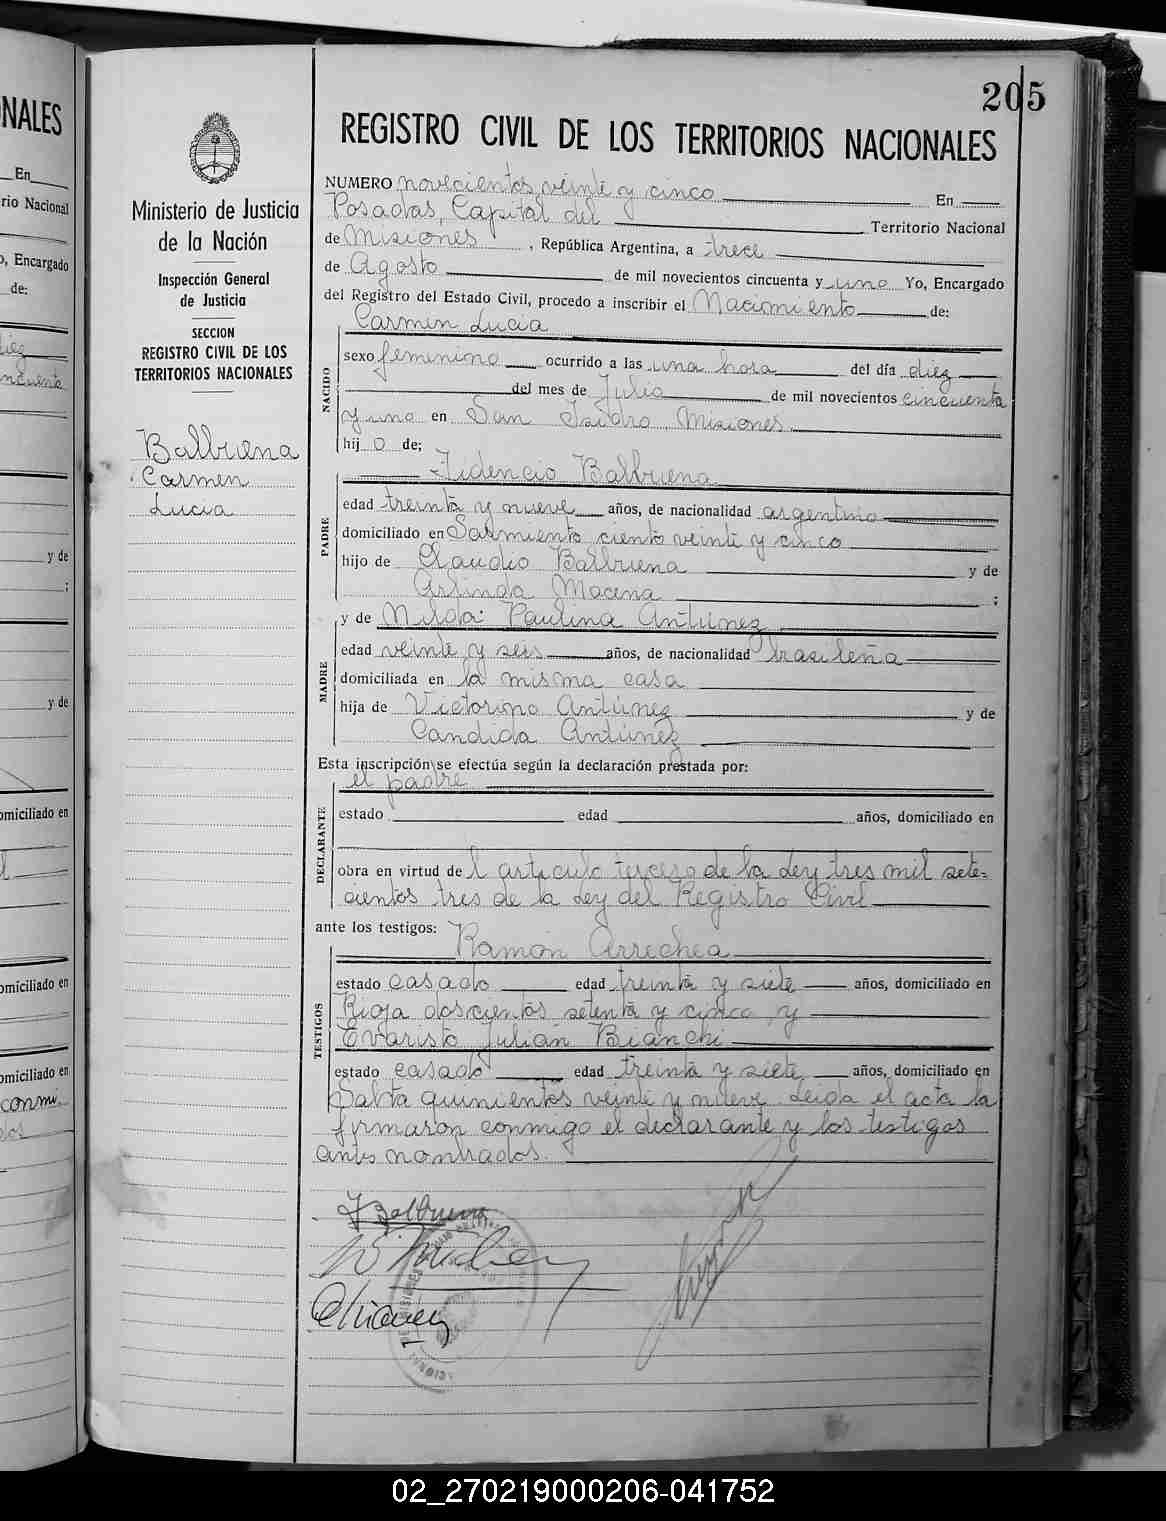 205
REGISTRO CIVIL DE LOS TERRITORIOS NACIONALES
Ministerio de Justicia
de la Nación
Inspección General
de Justicia
SECCION
REGISTRO CIVIL DE LOS
TERRITORIOS NACIONALES
Balbuena
Carmen
Lucia
NUMERO novecientos veinte y cinco En
Posadas, Capital del Territorio Nacional
de Misiones, República Argentina, a trece
de Agosto de mil novecientos cincuenta y uno Yo, Encargado
del Registro del Estado Civil, procedo a inscribir el Nacimiento de:
Carmen Lucia
NACIDO
sexo femenino ocurrido a las una hora del día diez
del mes de Julio de mil novecientos cincuenta
y uno en San Isidro, Misiones
hij o de;
Fidencio Balbuena
PADRE
edad treinta y nueve años, de nacionalidad argentino
domiciliado en Sarmiento ciento veinte y cinco
hijo de Claudio Balbuena y de
Arlinda Macena ;
y de Nilda Paulina Antúnez
MADRE
edad veinte y seis años, de nacionalidad brasileña
domiciliada en la misma casa
hija de Victorino Antúnez y de
Candida Antúnez
Esta inscripción se efectúa según la declaración prestada por:
el padre
DECLARANTE
estado edad años, domiciliado en
obra en virtud del artículo tercero de la Ley tres mil sete-
cientos tres de la Ley del Registro Civil
ante los testigos:
Ramón Arrechea
TESTIGOS
estado casado edad treinta y siete años, domiciliado en
Rioja doscientos setenta y cinco y
Evaristo Julián Bianchi
estado casado edad treinta y siete años, domiciliado en
Salta quinientos veinte y nueve. Leida el acta la
firmaron conmigo el declarante y los testigos
antes nombrados.
F Balbuena
NALES
En
rio Nacional
o, Encargado
de:
y de
;
y de
omiciliado en
omiciliado en
omiciliado en
conmi.
02_270219000206-041752